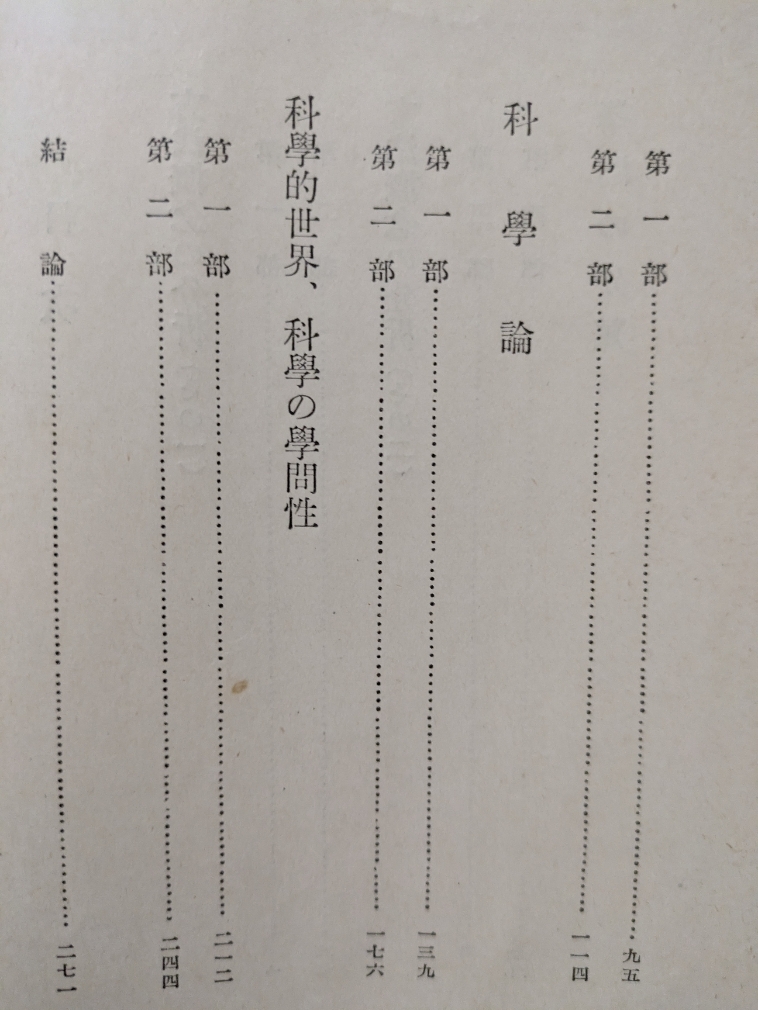 第一部……九五
第二部……一一四
科學論
第一部……一三九
第二部……一七六
科學的世界、科學の學問性
第一部……二一二
第二部……二四四
結論……二七一